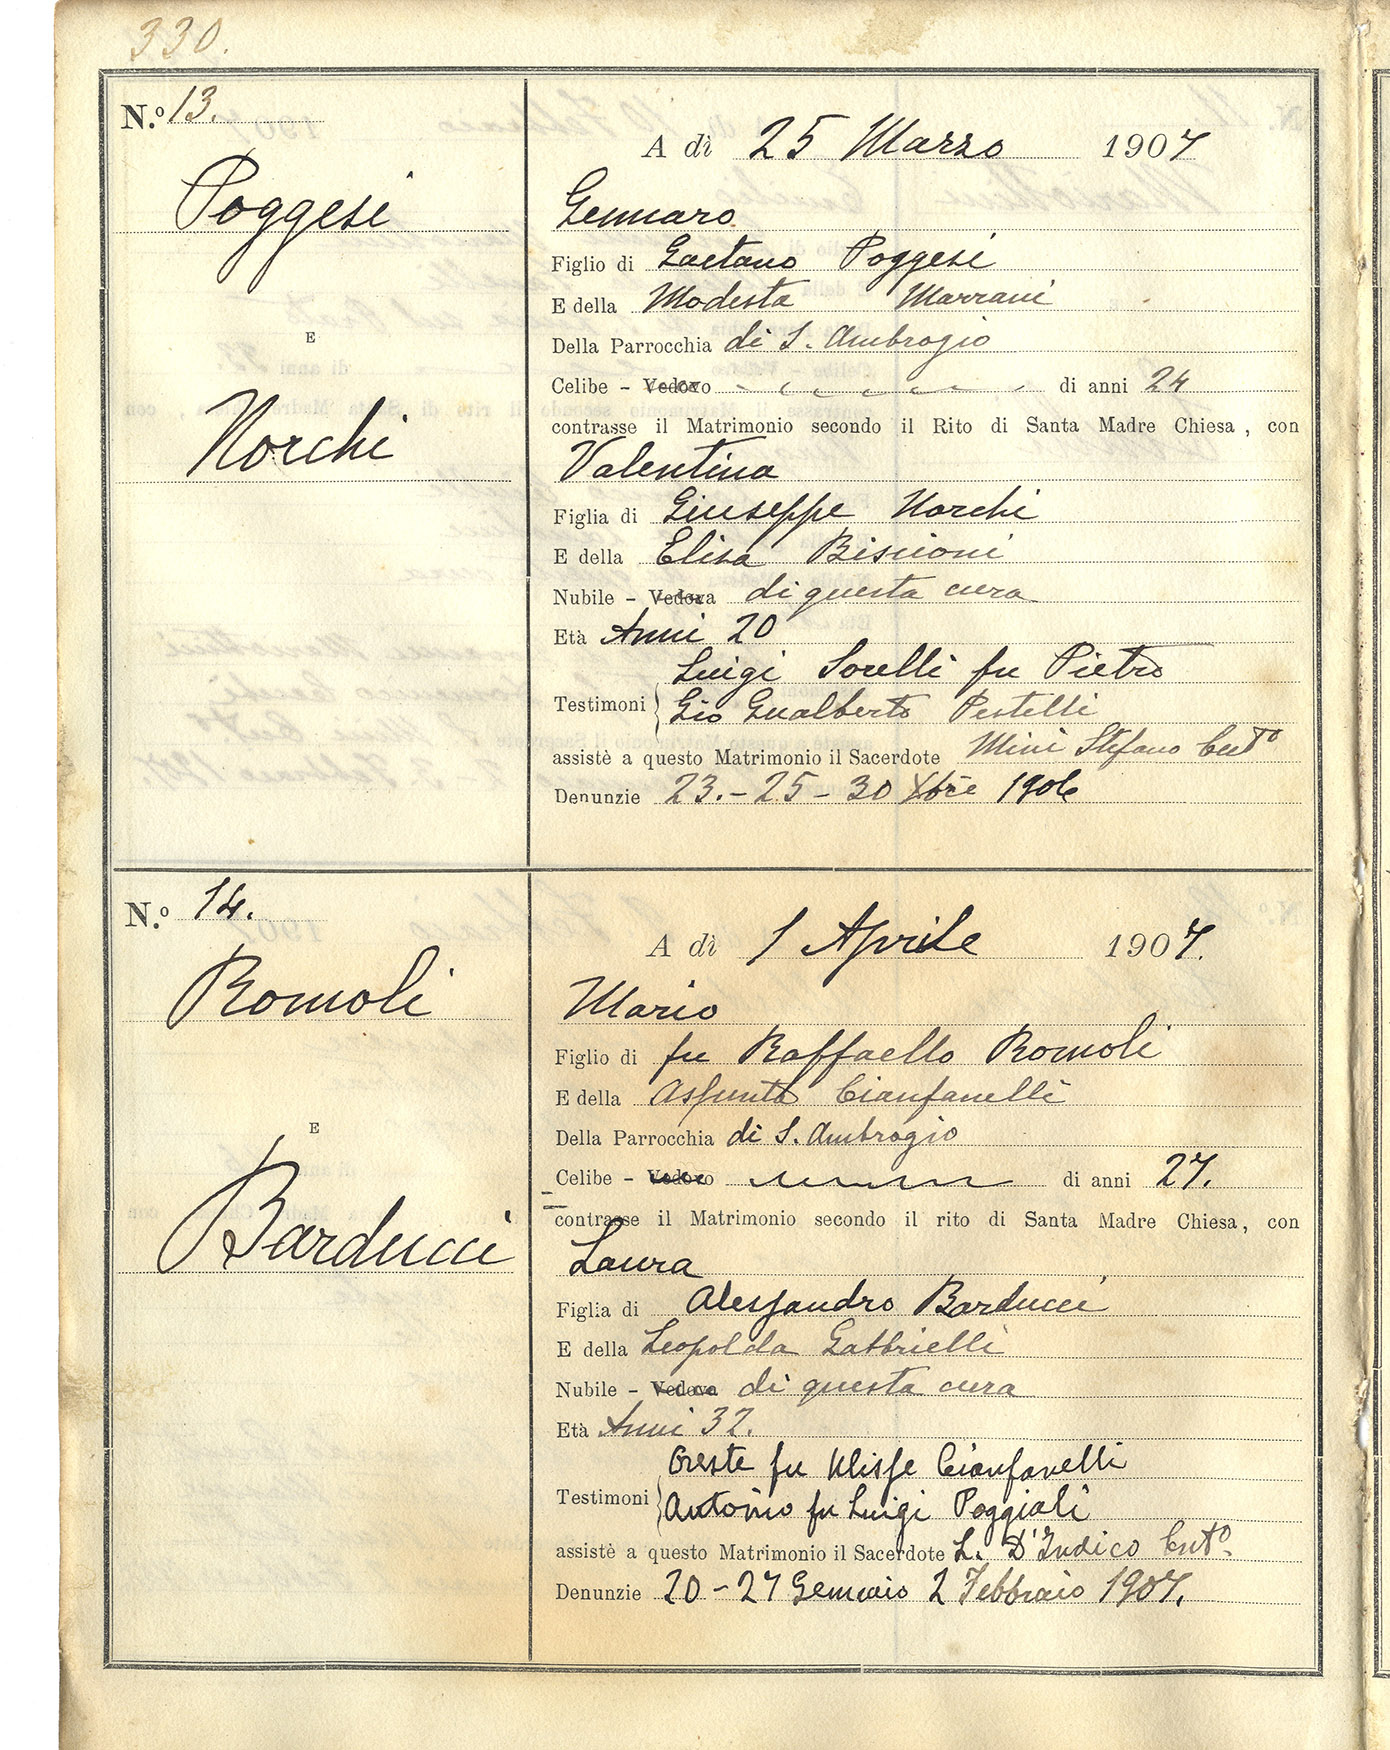 330.
N.º 13.
A dì 25 Marzo 1907
Poggesi
Gennaro
Figlio di Gaetano Poggesi
E della Modesta Marrani
E
Della Parrocchia di S. Ambrogio
Celibe - Vedovo di anni 24
contrasse il Matrimonio secondo il Rito di Santa Madre Chiesa, con
Norchi
Valentina
Figlia di Giuseppe Norchi
E della Elisa Biscioni
Nubile - Vedova di questa cura
Età Anni 20
Luigi Sorelli fu Pietro
Testimoni
Gio Gualberto Pestelli
assistè a questo Matrimonio il Sacerdote Mini Stefano Curtº
Denunzie 23.-25-30 Xbre 1906
N.º 14.
A dì 1 Aprile 1907.
Romoli
Mario
Figlio di fu Raffaello Romoli
E della Assunta Cianfanelli
E
Della Parrocchia di S. Ambrogio
Celibe - Vedovo di anni 27.
contrasse il Matrimonio secondo il rito di Santa Madre Chiesa, con
Barducci
Laura
Figlia di Alessandro Barducci
E della Leopolda Gabbrielli
Nubile - Vedova di questa cura
Età Anni 32.
Oreste fu Ulisse Cianfanelli
Testimoni
Antonio fu Luigi Poggiali
assistè a questo Matrimonio il Sacerdote L. D'Indico Curtº.
Denunzie 20-27 Gennaio 2 Febbraio 1907.